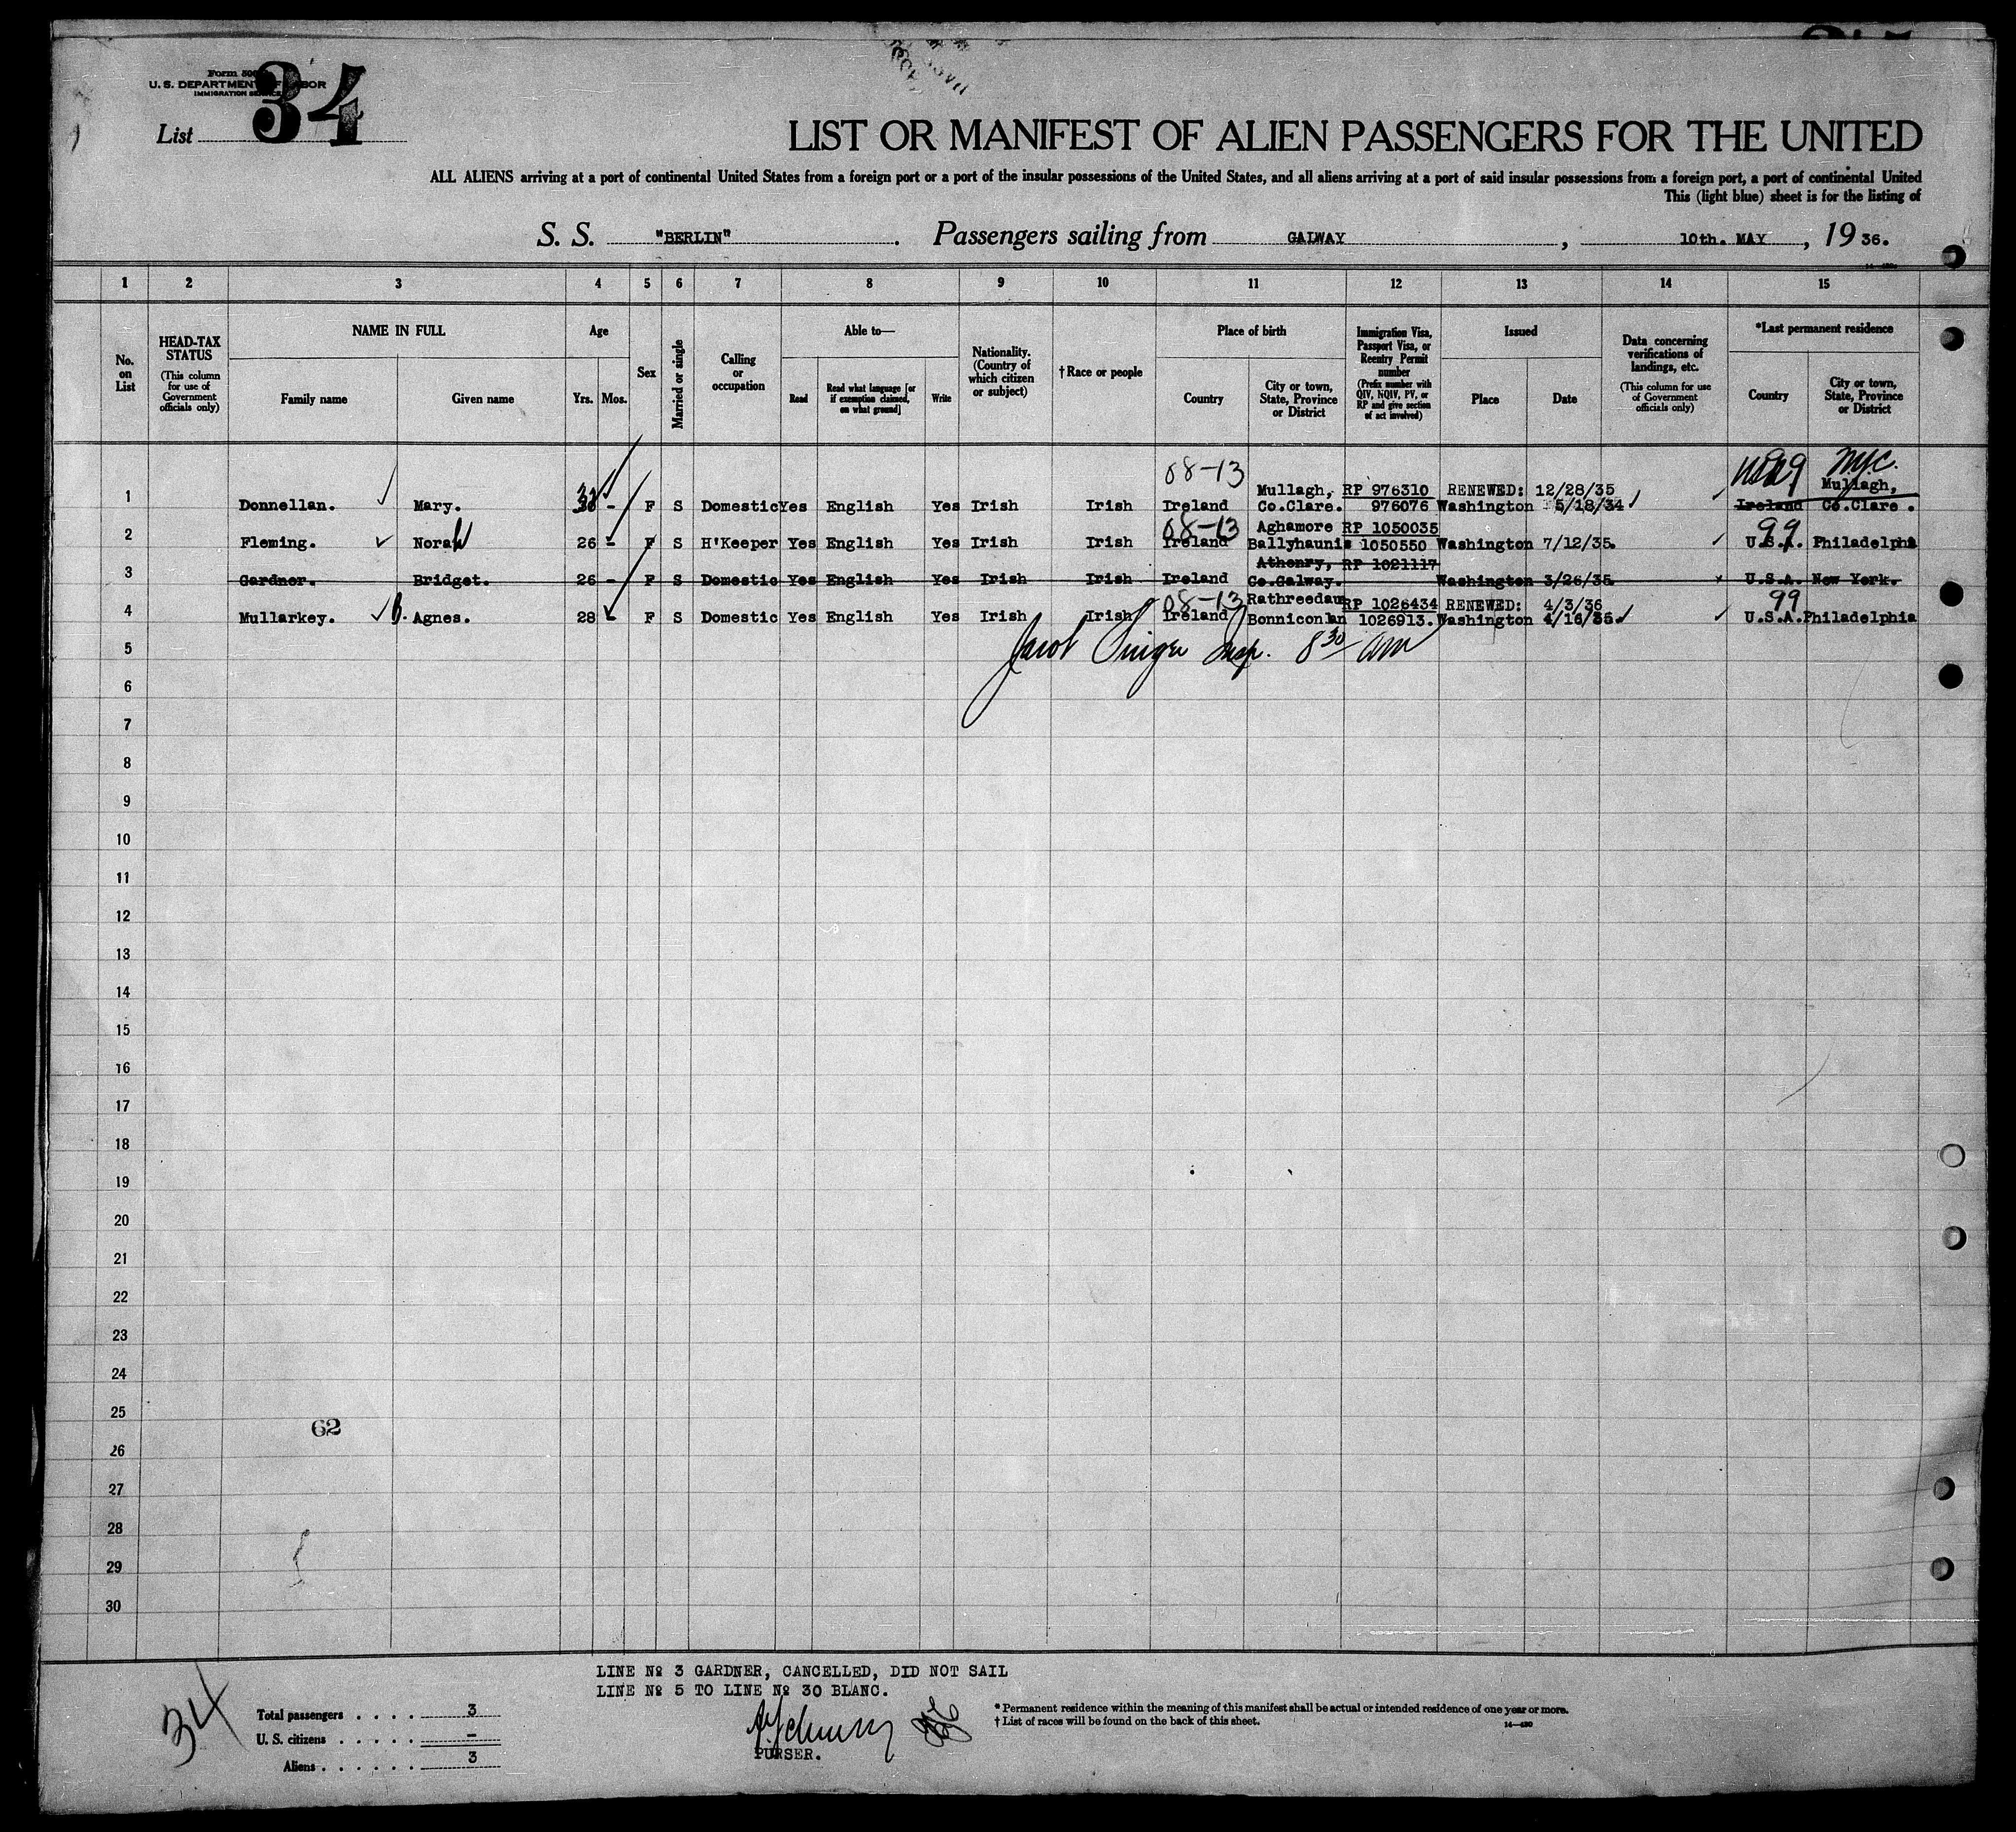 34
U. S. DEPARTMENT OF LABOR
IMMIGRATION SERVICE
List
LIST OR MANIFEST OF ALIEN PASSENGERS FOR THE UNITED
ALL ALIENS arriving at a port of continental United States from a foreign port or a port of the insular possessions of the United States, and all aliens arriving at a port of said insular possessions from a foreign port, a port of continental United
This (light blue) sheet is for the listing of
S. S. "BERLIN". Passengers sailing from GALWAY, 10th. MAY, 1936.
1 2 3 4 5 6 7 8 9 10 11 12 13 14 15
No. on List
HEAD-TAX STATUS (This column for use of Government officials only)
NAME IN FULL
Family name Given name
Age
Yrs. Mos.
Sex
Married or single
Calling or occupation
Able to—
Read Read what language [or if exemption claimed, on what ground] Write
Nationality. (Country of which citizen or subject)
† Race or people
Place of birth
Country City or town, State, Province or District
Immigration Visa, Passport Visa, or Reentry Permit number (Prefix number with QIV, NQIV, PV, or RP and give section of act involved)
Issued
Place Date
Data concerning verifications of landings, etc. (This column for use of Government officials only)
*Last permanent residence
Country City or town, State, Province or District
08-13 99 N.Y.C.
Mullagh, RP 976310 RENEWED: 12/28/35 Mullagh,
1 Donnellan. Mary. - F S Domestic Yes English Yes Irish Irish Ireland Co.Clare. 976076 Washington 5/18/34 Ireland Co.Clare.
08-13 Aghamore RP 1050035 99
2 Fleming. Norah 26 - F S H'Keeper Yes English Yes Irish Irish Ireland Ballyhaunis 1050550 Washington 7/12/35. U.S.A. Philadelphi
Athenry, RP 1021117
3 Gardner. Bridget. 26 - F S Domestic Yes English Yes Irish Irish Ireland Co.Galway. Washington 3/26/35. U.S.A. New York.
08-13 Rathreedau RP 1026434 RENEWED: 4/3/36 99
4 Mullarkey. B. Agnes. 28 - F S Domestic Yes English Yes Irish Irish Ireland Bonniconlan 1026913. Washington 4/16/35. U.S.A. Philadelphia
Insp. 8 30 am
5
6
7
8
9
10
11
12
13
14
15
16
17
18
19
20
21
22
23
24
25
62
26
27
28
29
30
LINE № 3 GARDNER, CANCELLED, DID NOT SAIL
LINE № 5 TO LINE № 30 BLANC.
34
Total passengers . . . . 3
U. S. citizens . . . . . –
Aliens . . . . . . 3
PURSER.
* Permanent residence within the meaning of this manifest shall be actual or intended residence of one year or more.
† List of races will be found on the back of this sheet.
14—430